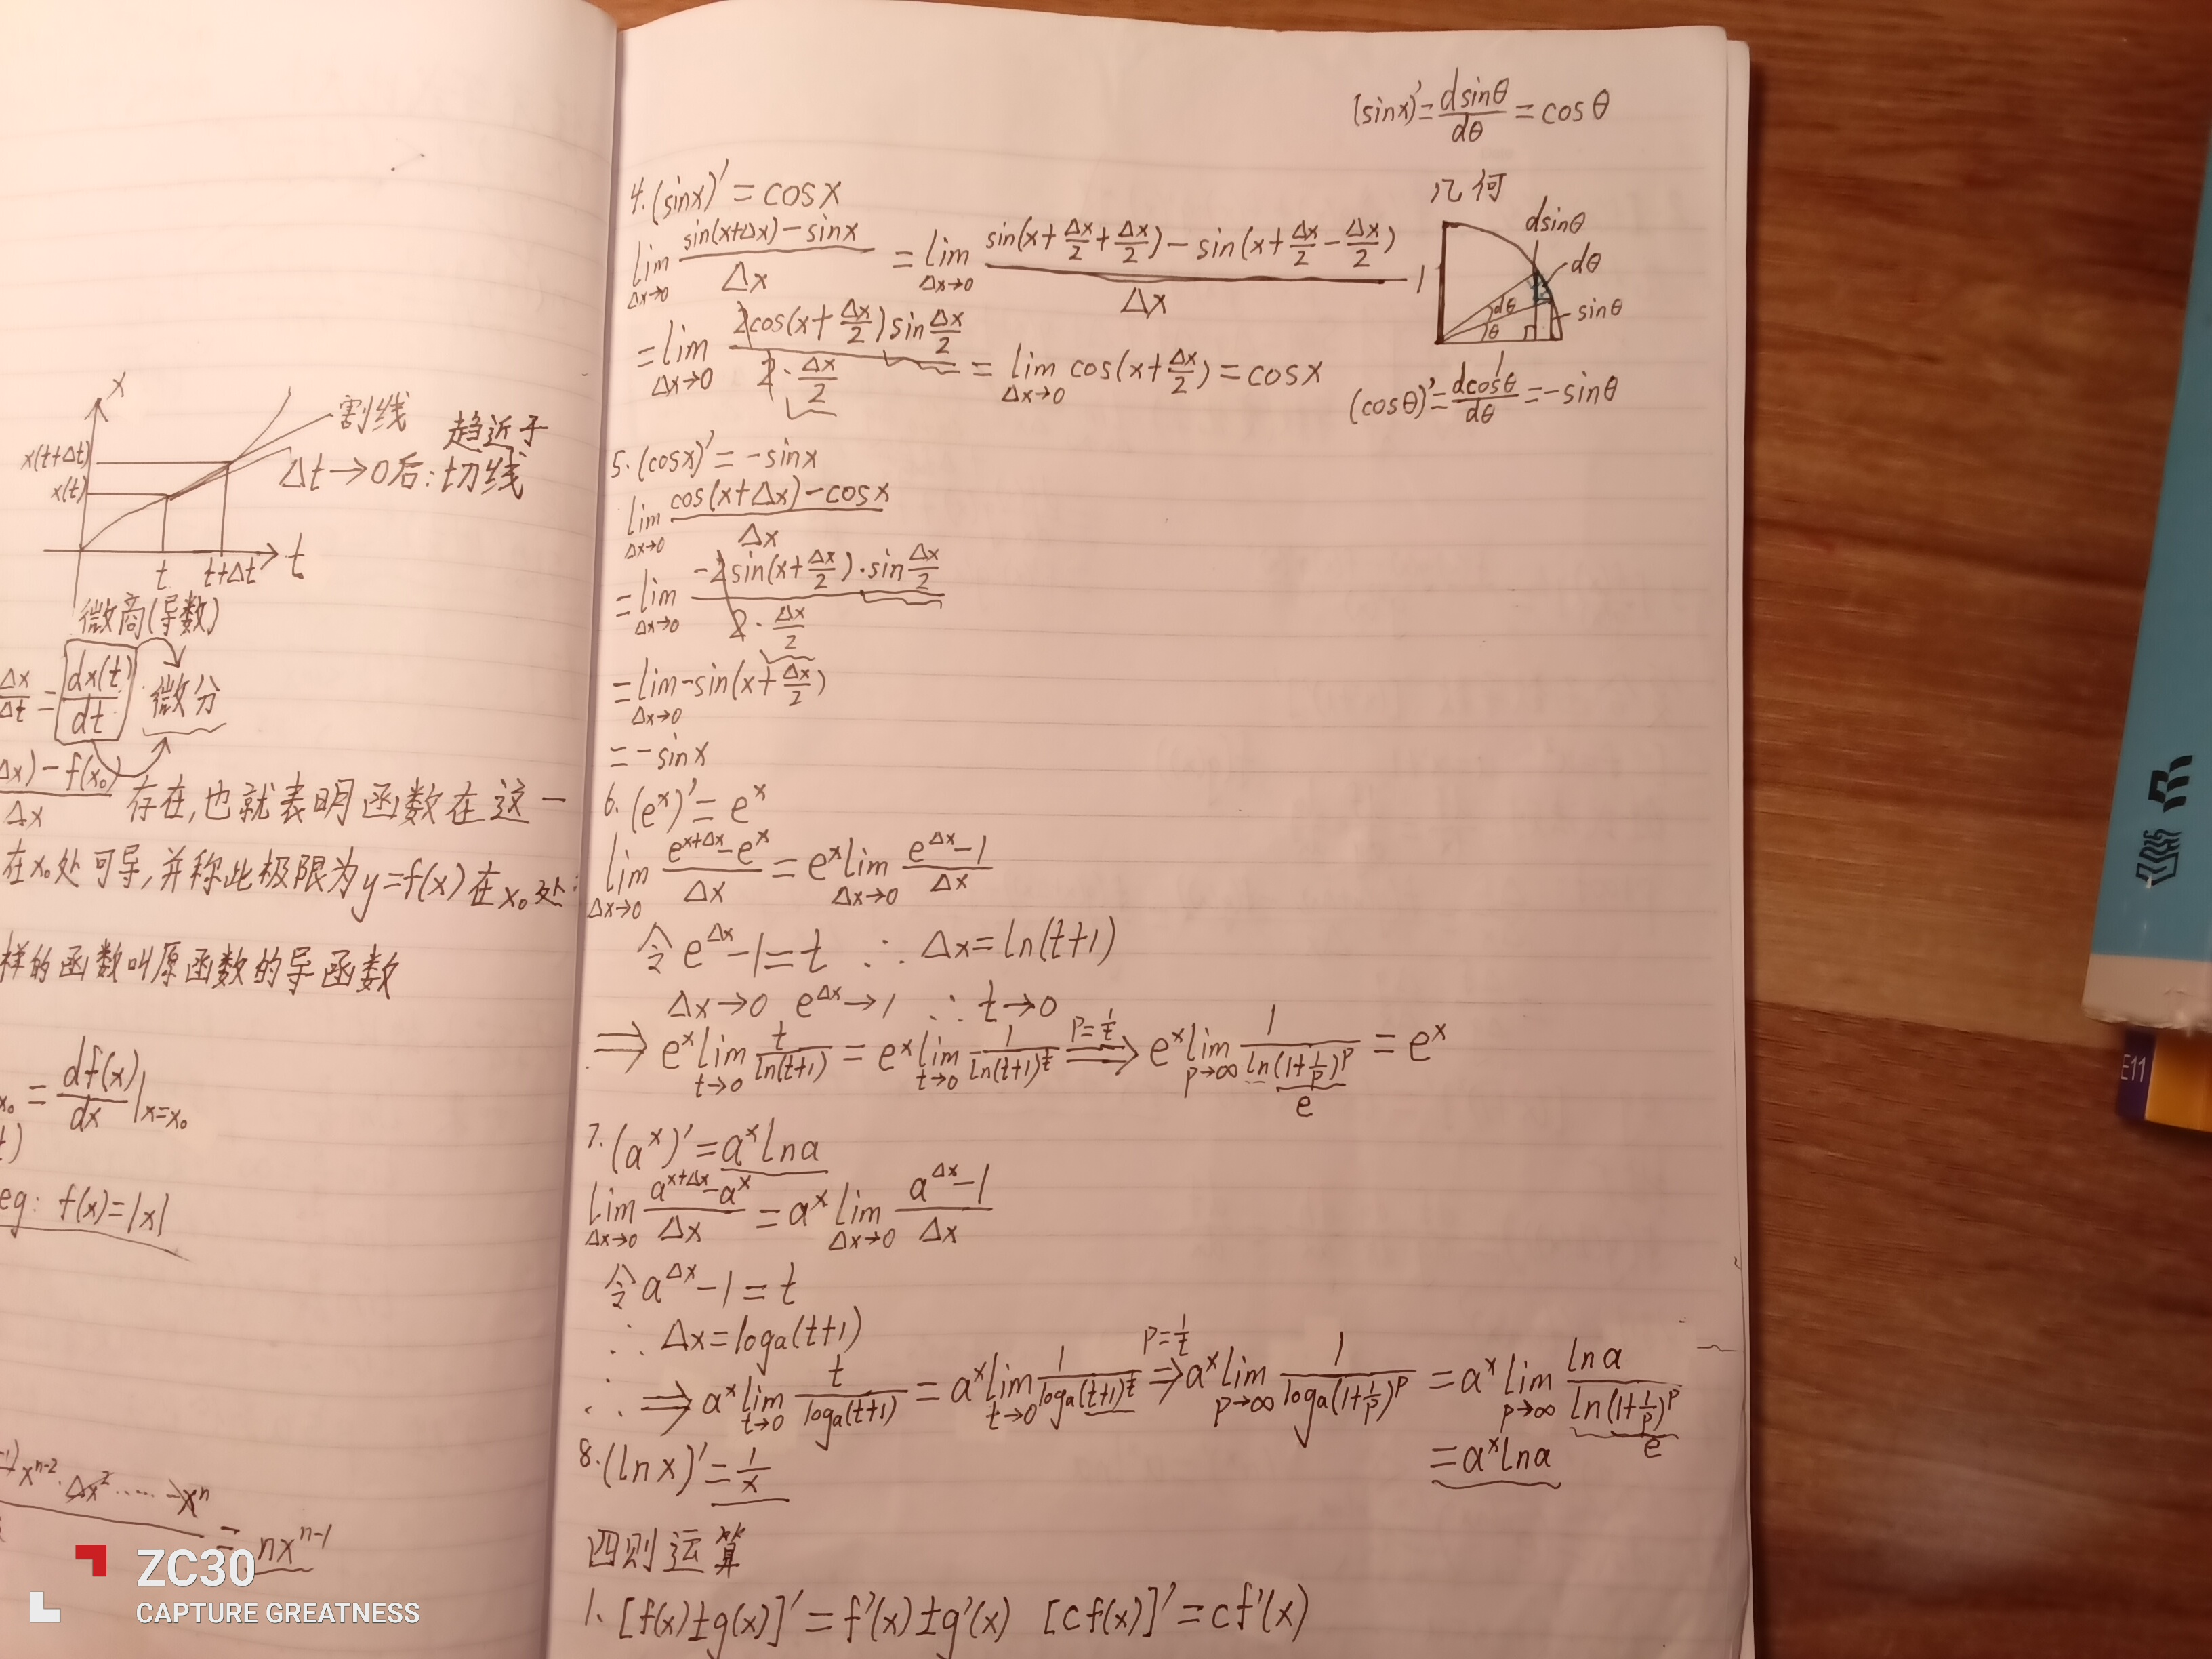 x
割线
趋近于
x(t+Δt)
Δt→0后:切线
x(t)
t t+Δt t
微商(导数)
Δx/Δt = dx(t)/dt 微分
Δx)-f(x₀)/Δx 存在,也就表明函数在这一
在x₀处可导,并称此极限为y=f(x)在x₀处
样的函数叫原函数的导函数
x₀ = df(x)/dx|x=x₀
t)
eg: f(x)=|x|
-1)x^(n-2)·Δx²……-xⁿ = nx^(n-1)
ZC30
CAPTURE GREATNESS
(sinx)'=dsinθ/dθ=cosθ
4.(sinx)'=cosx
lim Δx→0 (sin(x+Δx)-sinx)/Δx = lim Δx→0 (sin(x+Δx/2+Δx/2)-sin(x+Δx/2-Δx/2))/Δx
=lim Δx→0 (2cos(x+Δx/2)sinΔx/2)/(2·Δx/2) = lim Δx→0 cos(x+Δx/2)=cosx
几何
dsinθ
dθ
1
dθ
sinθ
θ
1
(cosθ)'=dcosθ/dθ=-sinθ
5.(cosx)'=-sinx
lim Δx→0 (cos(x+Δx)-cosx)/Δx
=lim Δx→0 (-2sin(x+Δx/2)·sinΔx/2)/(2·Δx/2)
=lim Δx→0 -sin(x+Δx/2)
=-sinx
6.(eˣ)'=eˣ
lim Δx→0 (e^(x+Δx)-eˣ)/Δx = eˣ lim Δx→0 (e^Δx-1)/Δx
令e^Δx-1=t ∴Δx=ln(t+1)
Δx→0 e^Δx→1 ∴t→0
⇒eˣ lim t→0 t/ln(t+1) = eˣ lim t→0 1/ln(t+1)^(1/t) ⇒(p=1/t) eˣ lim p→∞ 1/ln(1+1/p)^p = eˣ
e
7.(aˣ)'=aˣlna
lim Δx→0 (a^(x+Δx)-aˣ)/Δx = aˣ lim Δx→0 (a^Δx-1)/Δx
令a^Δx-1=t
∴Δx=loga(t+1)
∴⇒aˣ lim t→0 t/loga(t+1) = aˣ lim t→0 1/loga(t+1)^(1/t) ⇒(p=1/t) aˣ lim p→∞ 1/loga(1+1/p)^p = aˣ lim p→∞ lna/ln(1+1/p)^p
e
=aˣlna
8.(lnx)'=1/x
四则运算
1.[f(x)±g(x)]'=f'(x)±g'(x) [cf(x)]'=cf'(x)
E11